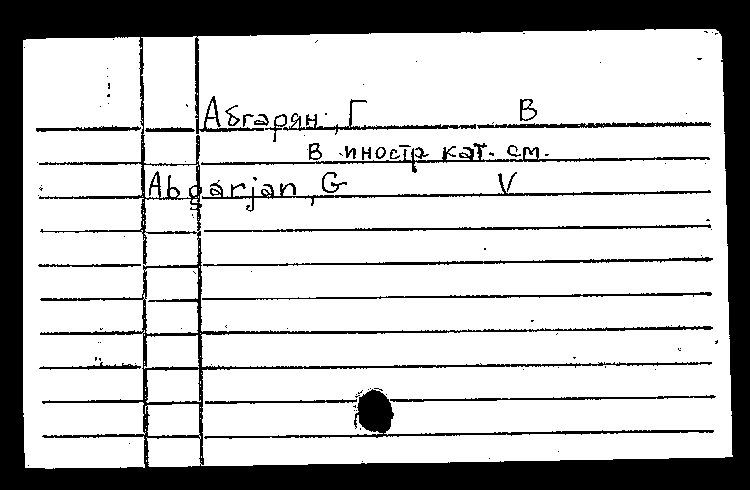 Абгарян, Г В
В иностр кат. см.
Abgarjan, G V